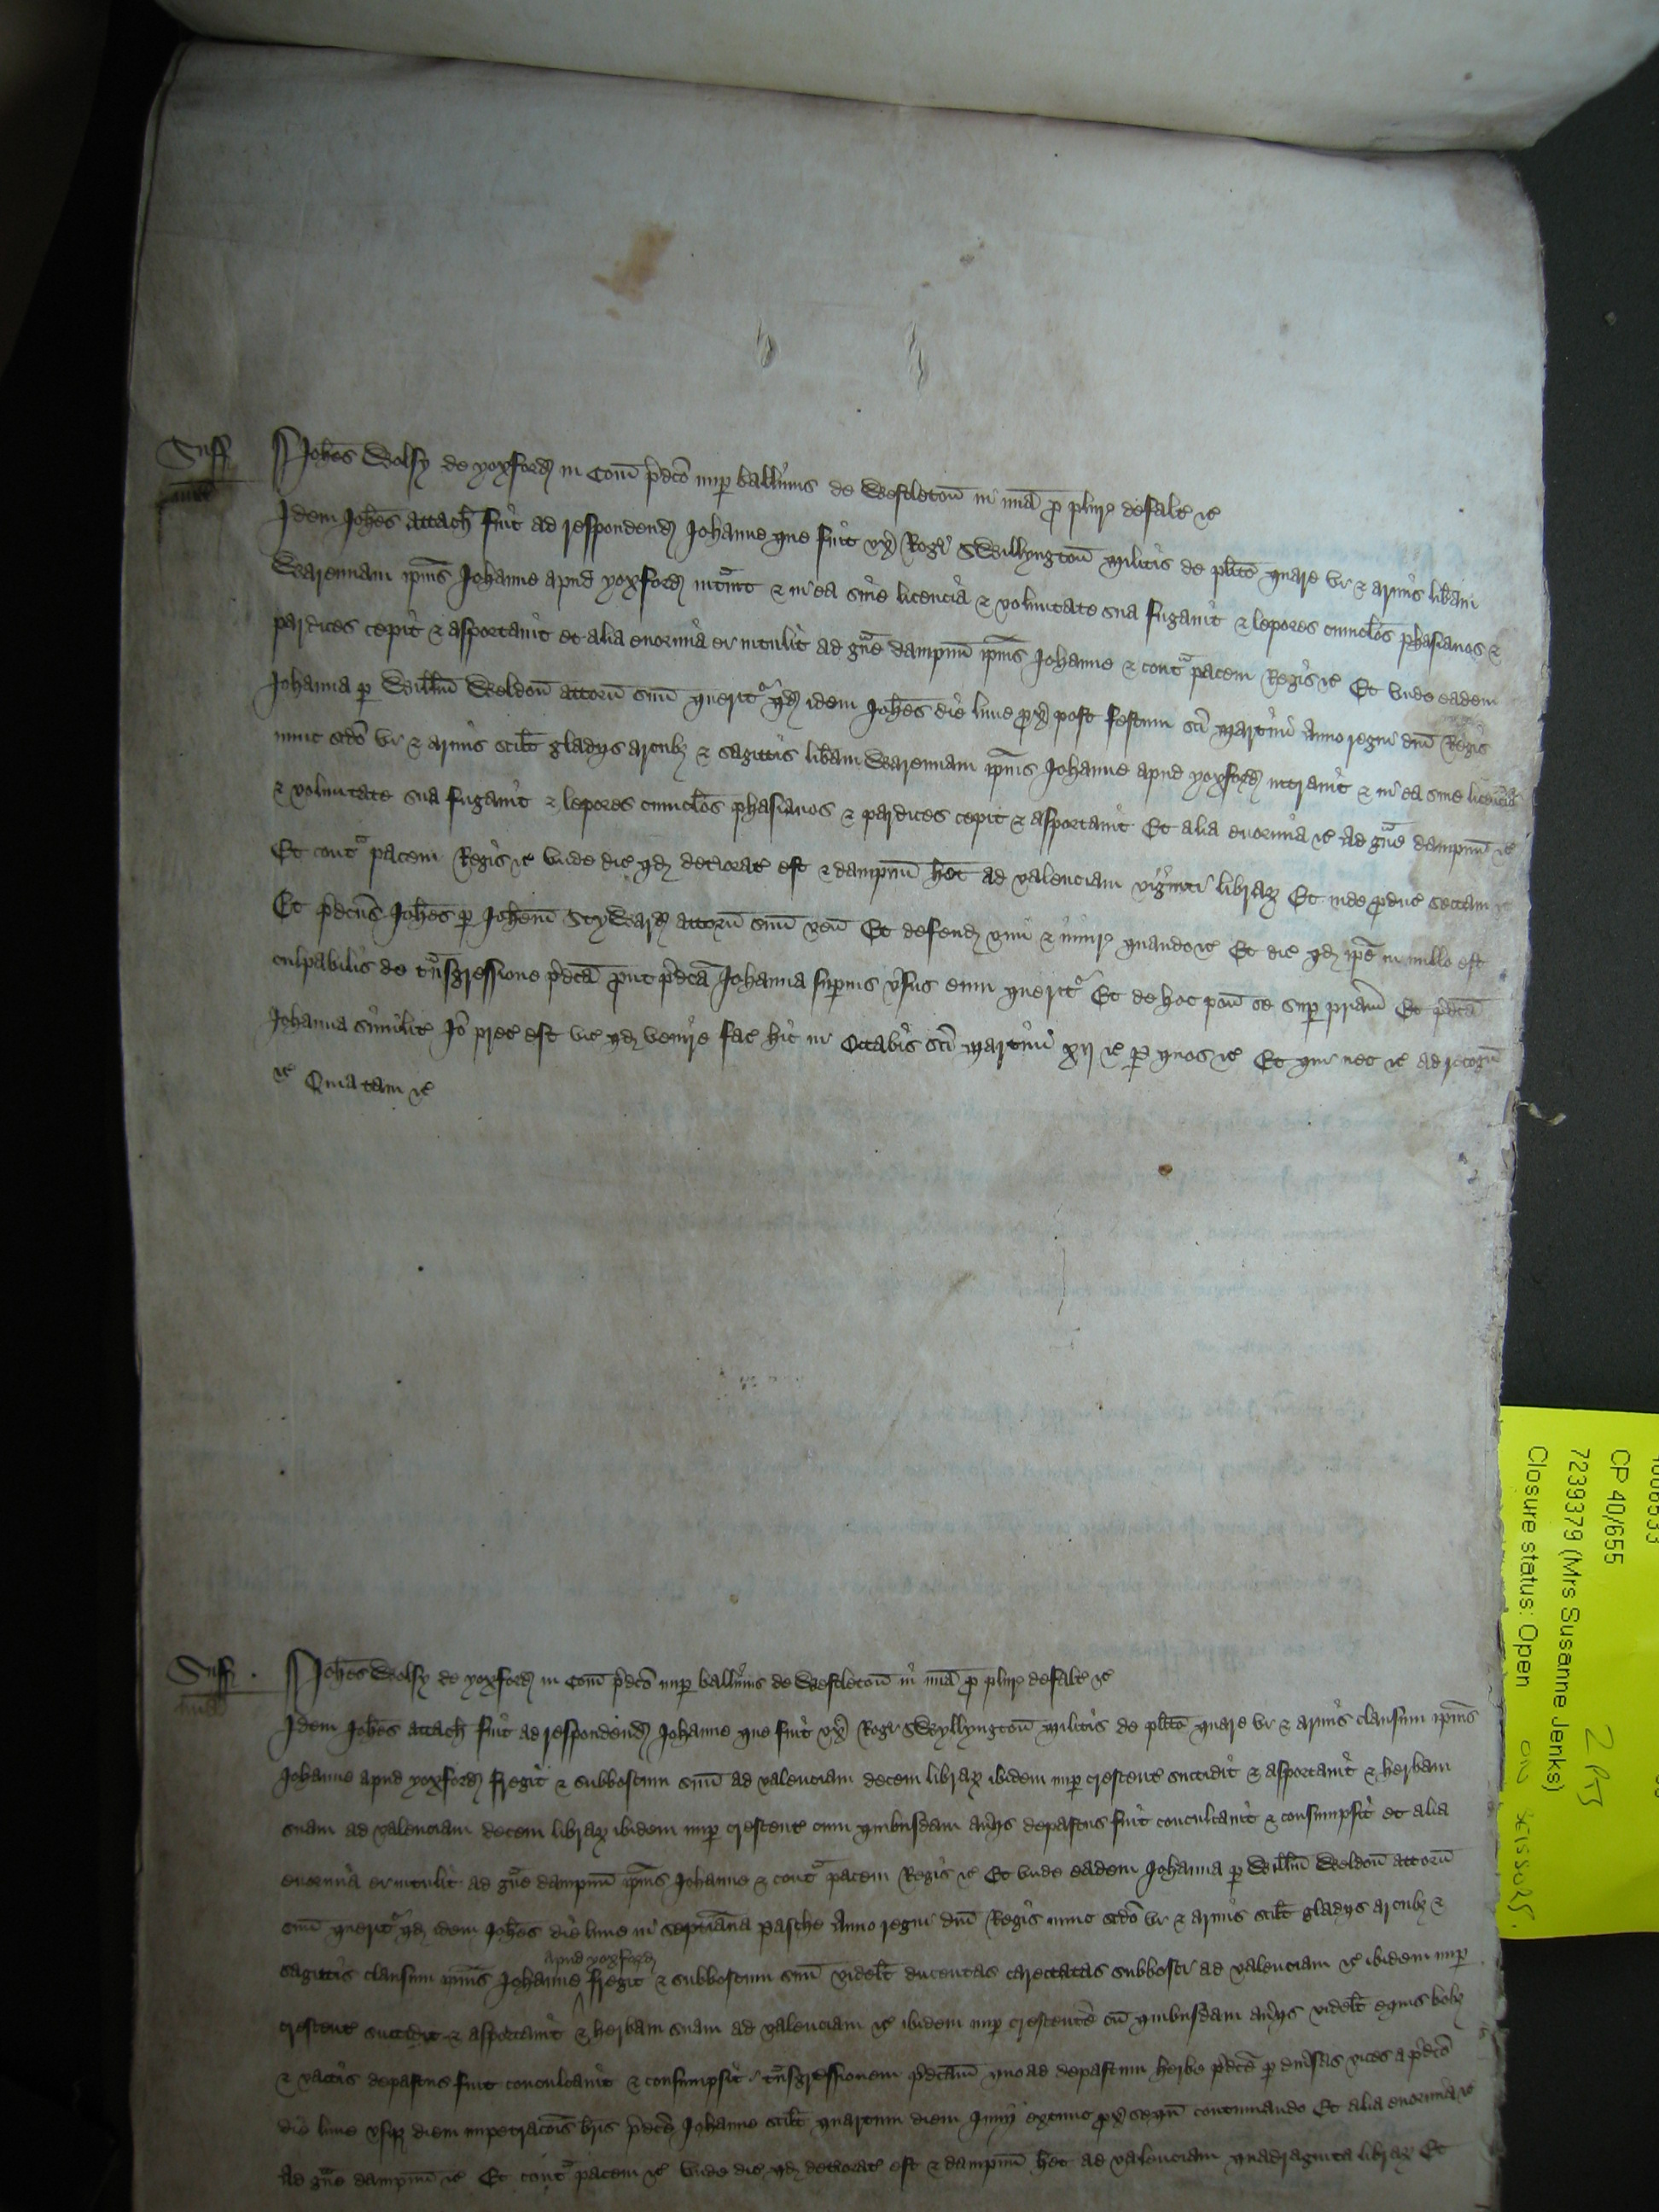 Suff
Joħes Wolsy de yoxford in Com̄ p̄dc̄o nup̱ balliuus de Westleton̄ in m̄ia p̱ plur̄ defalt̄ &c̄
Idem Joħes attach̄ fuit ad respondend̄ Johanne que fuit vx̄ Rogi Swillyngton̄ militis de pl̄ito quare vi & armis lib̄am
Warennam ip̄ius Johanne apud yoxford intᵃuit & in ea sine licencia & voluntate sua fugauit & lepores cunic̄los phasianos &
pardices cepit & asportauit et alia enormia ei intulit ad gᵃue dampnū ip̄ius Johanne & contᵃ pacem Regis &c̄ Et vnde eadem
Johanna p̱ Will̄m Weldon̄ attorn̄ suū querit̄ qd̄ idem Joħes die lune p̱x̄ post festum sc̄i Martini Anno regni dn̄i Regis
nunc scd̄o vi & armis scil̄t gladijs arcub̄ & sagittis lib̄am Warennam ip̄ius Johanne apud yoxford intrauit & in ea sine licencia
& voluntate sua fugauit & lepores cunic̄los phasianos & pardices cepit & asportauit Et alia enormia &c̄ Ad gᵃue dampnū &c̄
Et contᵃ pacem Regis &c̄ vnde dic̄ qd̄ deteriorat̄ est & dampnū h̄et ad valenciam viginti librar̄ Et inde p̱duc̄ sectam &c̄
Et p̄dcūs Joħes p̱ Joħem Styward attorn̄ suū ven̄ Et defend̄ vim & iniur̄ quando &c̄ Et dic̄ qd̄ ip̄e in nullo est
culpabilis de tᵃnsgressione p̄dcā p̱ut p̄dcā Johanna sup̱ius v̄sus eum querit̄ Et de hoc pon̄ se sup̱ pr̄iam Et p̄dcā
Johanna similit̄ Jō prec̄ est vic̄ qd̄ venire fac̄ hic in Octabis sc̄i Martini xij &c̄ p̱ quos &c̄ Et qui nec &c̄ ad recogn̄
&c̄ Quia tam &c̄
Suff
Joħes Wolsy de yoxford in Com̄ p̄dc̄o nup̱ balliuus de Westleton̄ in m̄ia p̱ plur̄ defalt̄ &c̄
Idem Joħes attach̄ fuit ad respondend̄ Johanne que fuit vx̄ Rogi Swyllyngton̄ militis de pl̄ito quare vi & armis clausum ip̄ius
Johanne apud yoxford fregit & subboscum suū ad valenciam decem librar̄ ibidem nup̱ crescent̄ succidit & asportauit & herbam
suam ad valenciam decem librar̄ ibidem nup̱ crescent̄ cum quibusdam aūijs depastus fuit conculcauit & consumpsit et alia
enormia ei intulit ad gᵃue dampnū ip̄ius Johanne & contᵃ pacem Regis &c̄ Et vnde eadem Johanna p̱ Will̄m Weldon̄ attorn̄
suū querit̄ qd̄ idem Joħes die lune in septiān̄a pasche Anno regni dn̄i Regis nunc scd̄o vi & armis scil̄t gladijs arcub̄ &
sagittis clausum ip̄ius Johanne apud yoxford fregit & subboscum suū videl̄t ducentas carectatas subbosci ad valenciam &c̄ ibidem nup̱
crescent̄ succidit & asportauit & herbam suam ad valenciam &c̄ ibidem nup̱ crescent̄ cū quibusdam aūijs videl̄t equis bob̄
& vaccis depastus fuit conculcauit & consumpsit tᵃnsgressionem p̄dcām quo ad depastum herbe p̄dcē p̱ diūsas vices a p̄dc̄o
die lune vsq̄ diem impetracōis br̄is p̄dcē Johanne scil̄t quartum diem Junij extunc p̱x̄ seqū continuando Et alia enormia &c̄
Ad gᵃue dampnū &c̄ Et contᵃ pacem &c̄ vnde dic̄ qd̄ deteriorat̄ est & dampnū h̄et ad valenciam quadraginta librar̄ Et
CP 40/655
7239379 (Mrs Susanne Jenks)
Closure status: Open